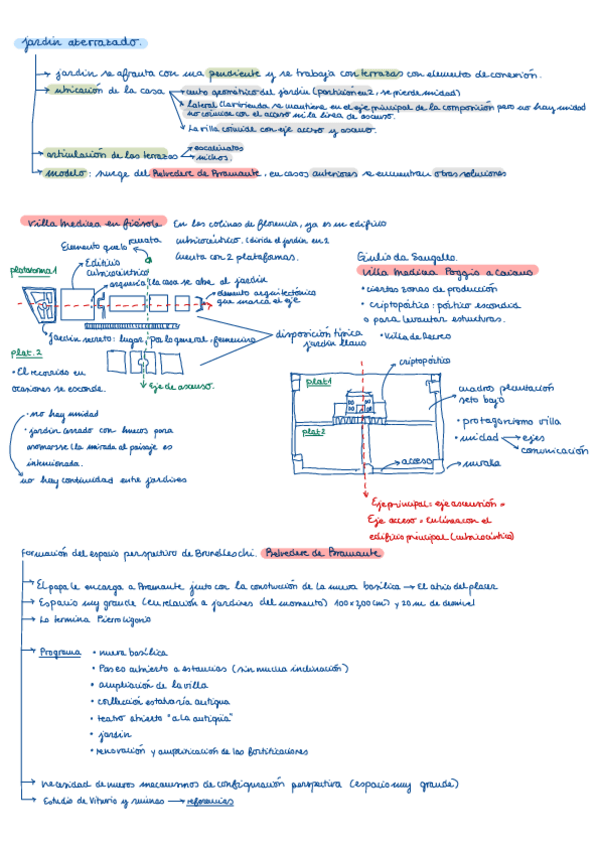 jardín aterrazado.
jardín se afronta con una pendiente y se trabaja con terrazas con elementos de conexión.
ubicación de la casa
centro geométrico del jardín (partición en 2, se pierde unidad)
lateral (la vivienda se mantiene en el eje principal de la composición pero no hay unidad
no coincide con el acceso ni la línea de ascenso.
La villa coincide con eje acceso y ascenso.
articulación de las terrazas
escalinatas
nichos.
modelo: surge del Belvedere de Bramante, en casos anteriores se encuentran otras soluciones
Villa Medicea en Fiésole
En las colinas de Florencia, ya es un edificio
urbinocéntrico. (divide el jardín en 2
Cuenta con 2 plataformas.
Elemento que lo
remata
Edificio
plataforma 1
arquería la casa se abre al jardín
elemento arquitectónico
que marca el eje
jardín secreto: lugar, por lo general, femenino
disposición típica
jardín llano
plat. 2
• El recorrido en
ocasiones se esconde.
Eje de ascenso.
• no hay unidad
• jardín cerrado con huecos para
asomarse (la mirada al paisaje es
intencionada.
no hay continuidad entre jardines
Giulio da Sangallo.
Villa Medicea Poggio a Caiano
• ciertas zonas de producción
• criptopórtico: pórtico escondido
o para levantar estructuras.
• Villa de Recreo
criptopórtico
plat 1
plat 2
cuadro plantación
seto bajo
• protagonismo villa
• unidad
ejes
comunicación
acceso
muralla
Eje principal: eje ascensión =
Eje acceso = culminan con el
edificio principal
Formación del espacio perspectivo de Brunelleschi. Belvedere de Bramante
El papa le encarga a Bramante junto con la construcción de la nueva basílica → El atrio del placer
Espacio muy grande (en relación a jardines del momento) 100x300 (m²) y 20 m de desnivel
Lo termina Pierro Ligorio
Programa
• nueva basílica
• Paseo cubierto a estancias (sin mucha inclinación)
• ampliación de la villa
• colección estatuaria antigua
• teatro abierto "a la antigüa"
• jardín
• renovación y amplificación de las fortificaciones
necesidad de nuevos mecanismos de configuración perspectiva (espacio muy grande)
Estudio de Vitruvio y ruinas → referencias